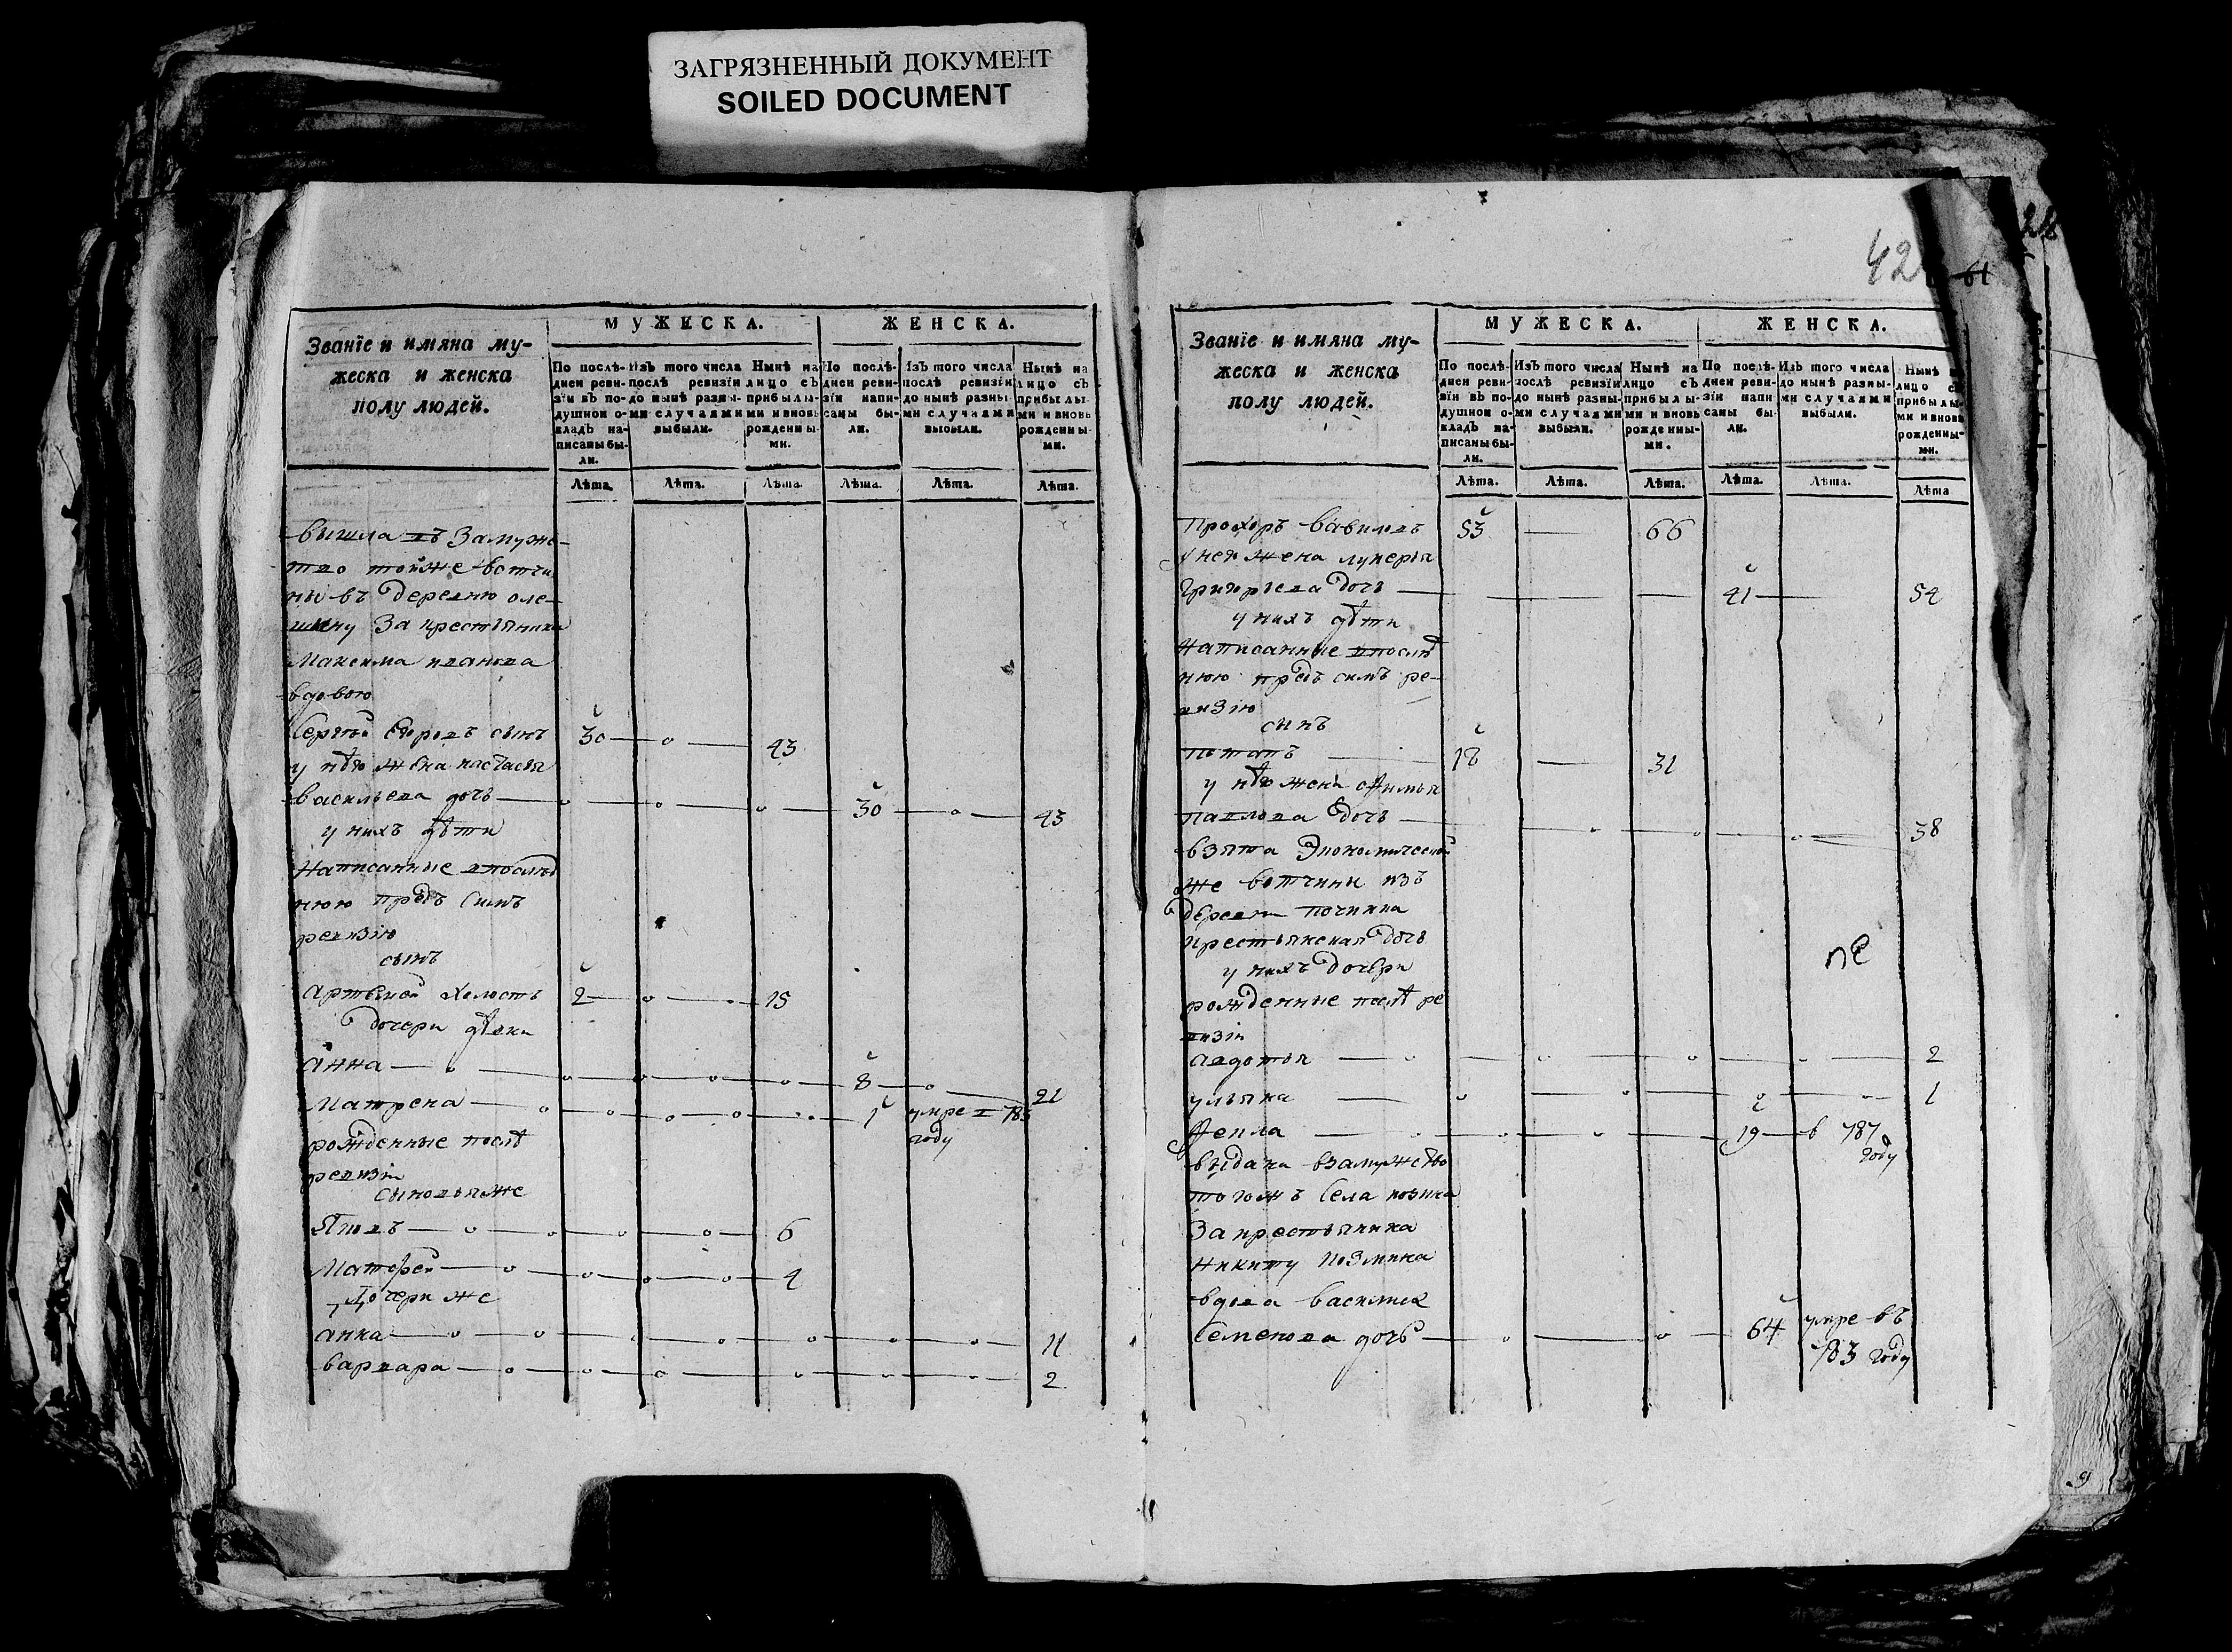 ЗАГРЯЗНЕННЫЙ ДОКУМЕНТ
SOILED DOCUMENT
Званїе и имяна му-
жеска и женска
полу людей.
МУЖЕСКА.
ЖЕНСКА.
По послѣ-
дней реви-
зїи въ по-
душной о-
кладъ на-
писаны бы-
ли.
Изъ того числа
послѣ ревизїи
до нынѣ разны-
ми случаями
выбыли.
Нынѣ на
лицо съ
прибылы-
ми и вновь
рожденны-
ми.
По послѣ-
дней реви-
зїи напи-
саны бы-
ли.
Изъ того числа
послѣ ревизїи
до нынѣ разны-
ми случаями
выбыли.
Нынѣ на
лицо съ
прибылы-
ми и вновь
рожденны-
ми.
Лѣта. Лѣта. Лѣта. Лѣта. Лѣта. Лѣта.
вышла въ замуже-
тво тойже вотчи
ны въ деревню оле-
шину за крестьянина
Максима иванова
вдовою
Сергѣй Егоровъ сынъ 30 43
у нѣго жена настасья
васильева дочь 30 43
у нихъ дѣти
написанные впослѣд
нюю предъ симъ
ревизїю
сынъ
артемей холостъ 2 15
дочери дѣвки
анна 8 21
Матрена 1 умре в 785
году
рожденные послѣ
ревизїи
сыновьяже
Яковъ 6
Матфей 4
дочери же
анна 11
варвара 2
42
61
Званїе и имяна му-
жеска и женска
полу людей.
МУЖЕСКА.
ЖЕНСКА.
По послѣ-
дней реви-
зїи въ по-
душной о-
кладъ на-
писаны бы-
ли.
Изъ того числа
послѣ ревизїи
до нынѣ разны-
ми случаями
выбыли.
Нынѣ на
лицо съ
прибылы-
ми и вновь
рожденны-
ми.
По послѣ-
дней реви-
зїи напи-
саны бы-
ли.
Изъ того числа
до нынѣ разны-
ми случаями
выбыли.
Нынѣ
лицо съ
прибылы-
ми и вновь
рожденны-
ми.
Лѣта. Лѣта. Лѣта. Лѣта. Лѣта. Лѣта
Прохоръ вавиловъ 53 66
у него жена лукерья
григорьева дочь 41 54
у нихъ дѣти
написанные впослѣд
нюю предъ симъ ре-
визїю
сынъ
потапъ 18 31
у нѣго жена афимья
павлова дочь 38
взята Экономической
же вотчины изъ
деревни починка
крестьянская дочь
у нихъ дочери
рожденные послѣ ре
визїи
авдотья 2
ульяна 1
фекла 19 в 787
году
выдана взамужство
тогожъ села
за крестьянина
никиту козмина
вдова василиса
Семенова дочь 64 умре въ
783 году